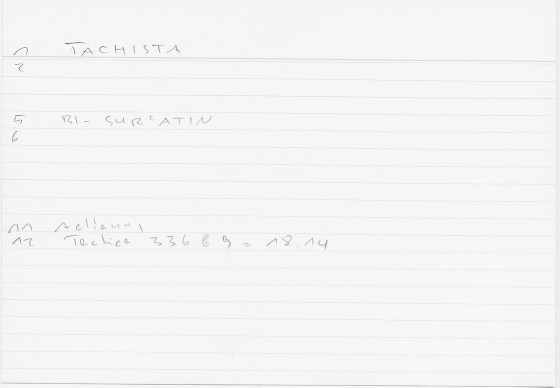 1 TACHISTA
2
5 BI- SURCATIN
6
11 Aelianus,
12 Tactica 336 6 9 = 18.14